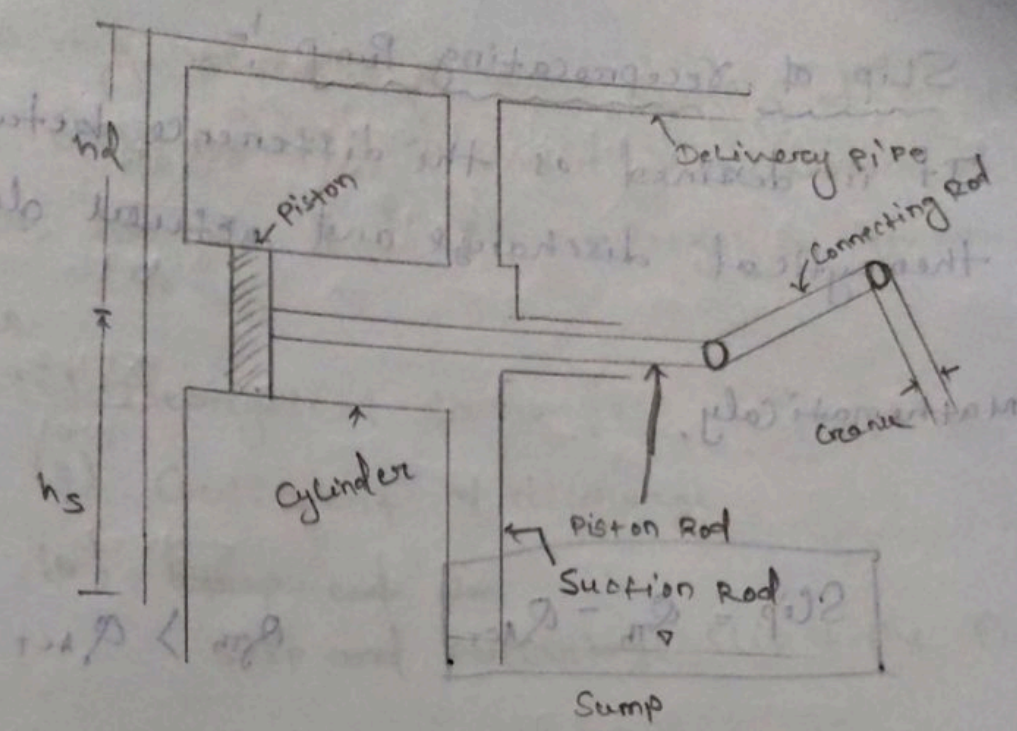 hd
Delivery pipe
Piston
Connecting Rod
Crank
hs
Cylinder
Piston Rod
Suction Rod
Sump